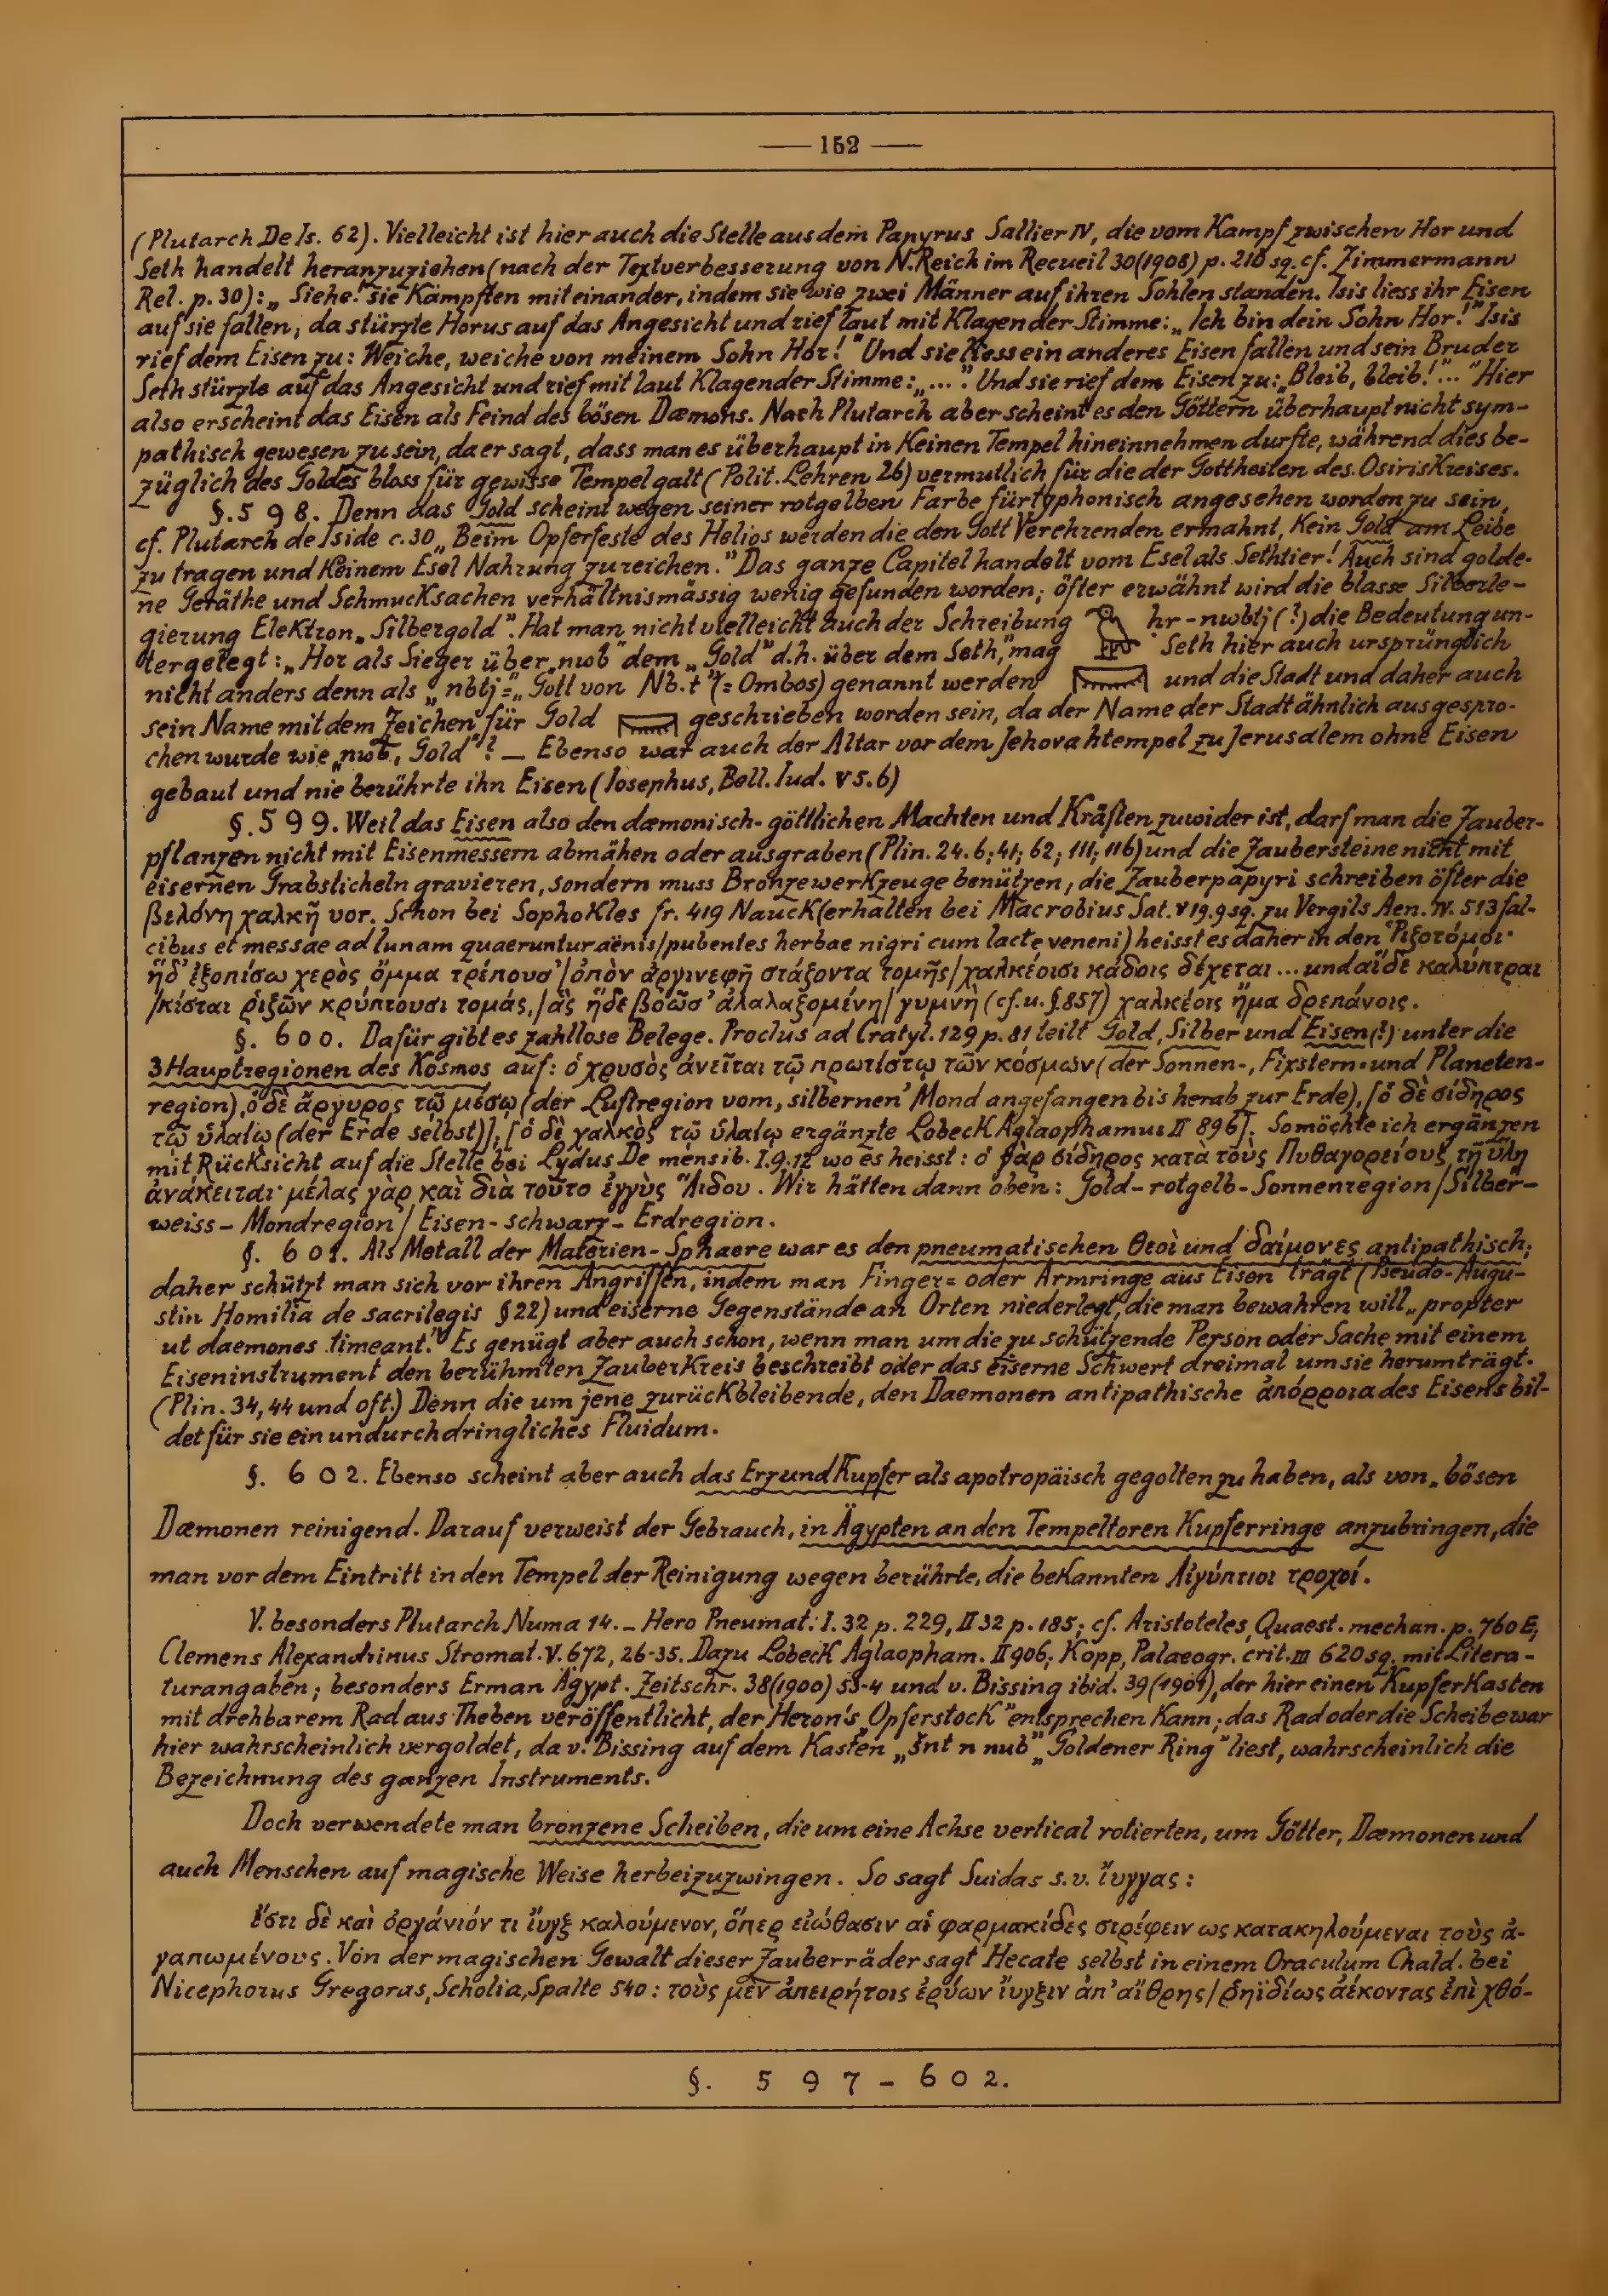 — 152 —
(Plutarch De Is. 62). Vielleicht ist hier auch die Stelle aus dem Papyrus Sallier IV, die vom Kampf zwischen Hor und
Seth handelt heranzuziehen (nach der Textverbesserung von N. Reich im Recueil 30 (1908) p. 210 sq. cf. Zimmermann
Rel. p. 30): „Siehe! sie Kämpften miteinander, indem sie wie zwei Männer auf ihren Sohlen standen. Isis liess ihr Eisen
auf sie fallen; da stürzte Horus auf das Angesicht und rief laut mit Klagender Stimme: „Ich bin dein Sohn Hor!" Isis
rief dem Eisen zu: Weiche, weiche von meinem Sohn Hor!" Und sie liess ein anderes Eisen fallen und sein Bruder
Seth stürzte auf das Angesicht und rief mit laut Klagender Stimme: „...". Und sie rief dem Eisen zu: „Bleib, bleib!"..." Hier
also erscheint das Eisen als Feind des bösen Dæmons. Nach Plutarch aber scheint es den Göttern überhaupt nicht sym-
pathisch gewesen zu sein, da er sagt, dass man es überhaupt in Keinen Tempel hineinnehmen durfte, während dies be-
züglich des Goldes bloss für gewisse Tempel galt (Polit. Lehren 26) vermutlich für die der Gottheiten des OsirisKreises.
§. 598. Denn das Gold scheint wegen seiner rotgelben Farbe für typhonisch angesehen worden zu sein,
cf. Plutarch de Iside c. 30 „Beim Opferfeste des Helios werden die den Gott Verehrenden ermahnt, Kein Gold am Leibe
zu tragen und Keinem Esel Nahrung zu reichen." Das ganze Capitel handelt vom Esel als Sethtier! Auch sind golde-
ne Geräthe und Schmucksachen verhältnismässig wenig gefunden worden; öfter erwähnt wird die blasse Silberle-
gierung Elektron „Silbergold". Hat man nicht vielleicht auch der Schreibung hr-nwbtj (?) die Bedeutung un-
tergelegt: „Hor als Sieger über „nwb" dem „Gold" d.h. über dem Seth," mag Seth hier auch ursprünglich
nicht anders denn als „nbtj = „Gott von Nb.t" (= Ombos) genannt werden und die Stadt und daher auch
sein Name mit dem Zeichen für Gold geschrieben worden sein, da der Name der Stadt ähnlich ausgespro-
chen wurde wie „nwb, Gold"? — Ebenso war auch der Altar vor dem Jehovahtempel zu Jerusalem ohne Eisen
gebaut und nie berührte ihn Eisen (Iosephus, Bell. Iud. V 5.6)
§. 599. Weil das Eisen also den dæmonisch-göttlichen Machten und Kräften zuwider ist, darf man die Zauber-
pflanzen nicht mit Eisenmessern abmähen oder ausgraben (Plin. 24. 6; 41; 62; 111; 116) und die Zaubersteine nicht mit
eisernen Grabsticheln gravieren, sondern muss Bronzewerkzeuge benützen, die Zauberpapyri schreiben öfter die
βελόνη χαλκῆ vor. Schon bei Sophokles fr. 419 Nauck (erhalten bei Macrobius Sat. V 19. 9 sq. zu Vergils Aen. IV. 513 fal-
cibus et messae ad lunam quaeruntur aënis / pubentes herbae nigri cum lacte veneni) heisst es daher in den Ῥιζοτόμοι·
ἥδ' ἐξοπίσω χερὸς ὄμμα τρέπουσ' / ὀπὸν ἀργινεφῆ στάζοντα τομῆς / χαλκέοισι κάδοις δέχεται ... und αἵδε καλύπτραι
/ κίσται ῥιζῶν κρύπτουσι τομάς, / ἃς ἥδε βοῶσ' ἀλαλαζομένη / γυμνὴ (cf. u. §. 857) χαλκέοις ἤμα δρεπάνοις.
§. 600. Dafür gibt es zahllose Belege. Proclus ad Cratyl. 129 p. 81 teilt Gold, Silber und Eisen (!) unter die
3 Hauptregionen des Kosmos auf: ὁ χρυσὸς ἀνεῖται τῷ πρωτίστῳ τῶν κόσμων (der Sonnen-, Fixstern- und Planeten-
region), ὁ δὲ ἄργυρος τῷ μέσῳ (der Luftregion vom „silbernen" Mond angefangen bis herab zur Erde), [ὁ δὲ σίδηρος
τῷ ὑλαίῳ (der Erde selbst)], [ὁ δὲ χαλκὸς τῷ ὑλαίῳ ergänzte Lobeck Aglaophamus II 896]. So möchte ich ergänzen
mit Rücksicht auf die Stelle bei Lydus De mensib. I. 9. 12 wo es heisst: ὁ γὰρ σίδηρος κατὰ τοὺς Πυθαγορείους τῇ ὕλῃ
ἀνάκειται· μέλας γὰρ καὶ διὰ τοῦτο ἐγγὺς Ἅιδου. Wir hätten dann oben: Gold-rotgelb-Sonnenregion / Silber-
weiss-Mondregion / Eisen-schwarz-Erdregion.
§. 601. Als Metall der Materien-Sphaere war es den pneumatischen θεοὶ und δαίμονες antipathisch;
daher schützt man sich vor ihren Angriffen, indem man Finger= oder Armringe aus Eisen trägt (Pseudo-Augu-
stin Homilia de sacrilegis § 22) und eiserne Gegenstände an Orten niederlegt, die man bewahren will „propter
ut daemones timeant." Es genügt aber auch schon, wenn man um die zu schützende Person oder Sache mit einem
Eiseninstrument den berühmten ZauberKreis beschreibt oder das eiserne Schwert dreimal um sie herumträgt.
(Plin. 34, 44 und oft.) Denn die um jene zurückbleibende, den Daemonen antipathische ἀπόρροια des Eisens bil-
det für sie ein undurchdringliches Fluidum.
§. 602. Ebenso scheint aber auch das Erz und Kupfer als apotropäisch gegolten zu haben, als von „bösen
Dæmonen reinigend. Darauf verweist der Gebrauch, in Ägypten an den Tempeltoren Kupferringe anzubringen, die
man vor dem Eintritt in den Tempel der Reinigung wegen berührte, die beKannten Αἰγύπτιοι τροχοί.
V. besonders Plutarch Numa 14. — Hero Pneumat. I. 32 p. 229, II 32 p. 185; cf. Aristoteles, Quaest. mechan. p. 760 E;
Clemens Alexandrinus Stromat. V. 672, 26-35. Dazu Lobeck Aglaopham. II 906; Kopp, Palaeogr. crit. III 620 sq. mit Litera-
turangaben; besonders Erman Ägypt. Zeitschr. 38 (1900) 53-4 und v. Bissing ibid. 39 (1901), der hier einen KupferKasten
mit drehbarem Rad aus Theben veröffentlicht, der Heron's „Opferstock" entsprechen Kann; das Rad oder die Scheibe war
hier wahrscheinlich vergoldet, da v. Bissing auf dem Kasten „šnt n nub" „Goldener Ring" liest, wahrscheinlich die
Bezeichnung des ganzen Instruments.
Doch verwendete man bronzene Scheiben, die um eine Achse vertical rotierten, um Götter, Dæmonen und
auch Menschen auf magische Weise herbeizuzwingen. So sagt Suidas s.v. ἴυγγας:
ἔστι δὲ καὶ ὀργάνιόν τι ἴυγξ καλούμενον, ὅπερ εἰώθασιν αἱ φαρμακίδες στρέφειν ως κατακηλούμεναι τοὺς ἀ-
γαπωμένους. Von der magischen Gewalt dieser Zauberräder sagt Hecate selbst in einem Oraculum Chald. bei
Nicephorus Gregoras, Scholia, Spalte 540: τοὺς μὲν ἀπειρήτοις ἐρύων ἴυγξιν ἀπ' αἴθρης / ῥηϊδίως ἀέκοντας ἐπὶ χθό-
§. 597-602.